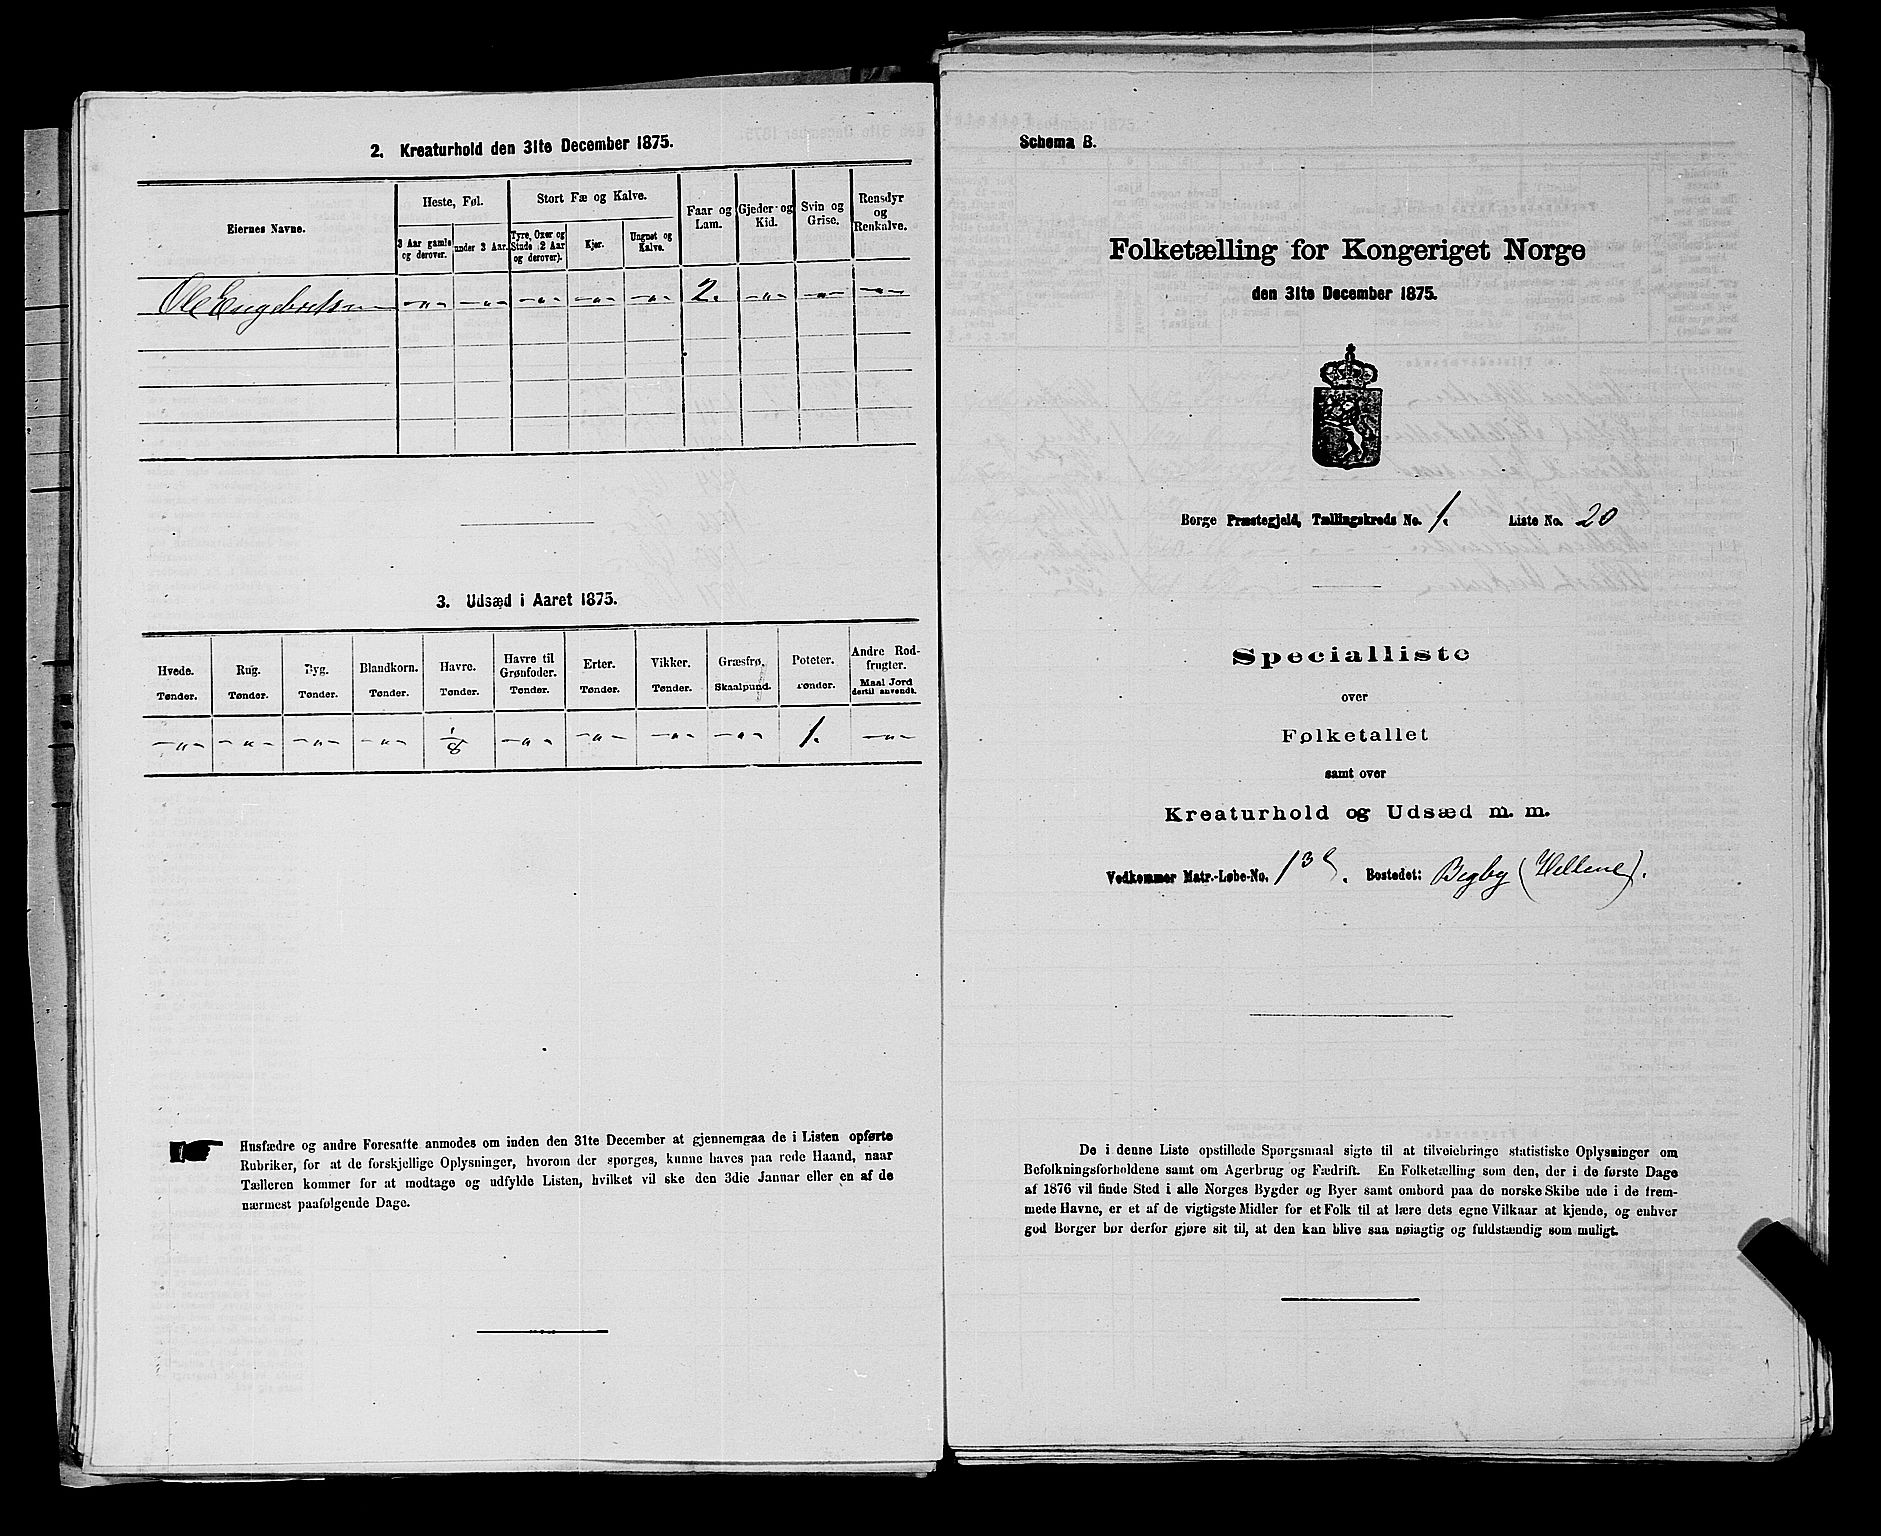 2. Kreaturhold den 31te December 1875.
Eiernes Navne.
Heste, Føl.
3 Aar gamle og derover.
under 3 Aar.
Stort Fæ og Kalve.
Tyre, Oxer og Stude (2 Aar og derover).
Kjør.
Ungnøt og Kalve.
Faar og Lam.
Gjeder og Kid.
Svin og Grise.
Rensdyr og Renkalve.
Ole Engebretsen -"- -"- -"- -"- -"- 2. -"- -"- -"-
3. Udsæd i Aaret 1875.
Hvede. Tønder.
Rug. Tønder.
Byg. Tønder.
Blandkorn. Tønder.
Havre. Tønder.
Havre til Grønfoder. Tønder.
Erter. Tønder.
Vikker. Tønder.
Græsfrø. Skaalpund.
Poteter. Tønder.
Andre Rodfrugter. Maal Jord dertil anvendt.
-"- -"- -"- -"- 1/8 -"- -"- -"- -"- 1. -"-
Husfædre og andre Foresatte anmodes om inden den 31te December at gjennemgaa de i Listen opførte
Rubriker, for at de forskjellige Oplysninger, hvorom der spørges, kunne haves paa rede Haand, naar
Tælleren kommer for at modtage og udfylde Listen, hvilket vil ske den 3die Januar eller en af de
nærmest paafølgende Dage.
Schema B.
Folketælling for Kongeriget Norge
den 31te December 1875.
Borge Præstegjeld, Tællingskreds No. 1. Liste No. 20
Specialliste
over
Folketallet
samt over
Kreaturhold og Udsæd m. m.
Vedkommer Matr.-Løbe-No. 13 Bostedet: Begby (Hellene).
De i denne Liste opstillede Spørgsmaal sigte til at tilveiebringe statistiske Oplysninger om
Befolkningsforholdene samt om Agerbrug og Fædrift. En Folketælling som den, der i de første Dage
af 1876 vil finde Sted i alle Norges Bygder og Byer samt ombord paa de norske Skibe ude i de frem-
mede Havne, er et af de vigtigste Midler for et Folk til at lære dets egne Vilkaar at kjende, og enhver
god Borger bør derfor gjøre sit til, at den kan blive saa nøiagtig og fuldstændig som muligt.